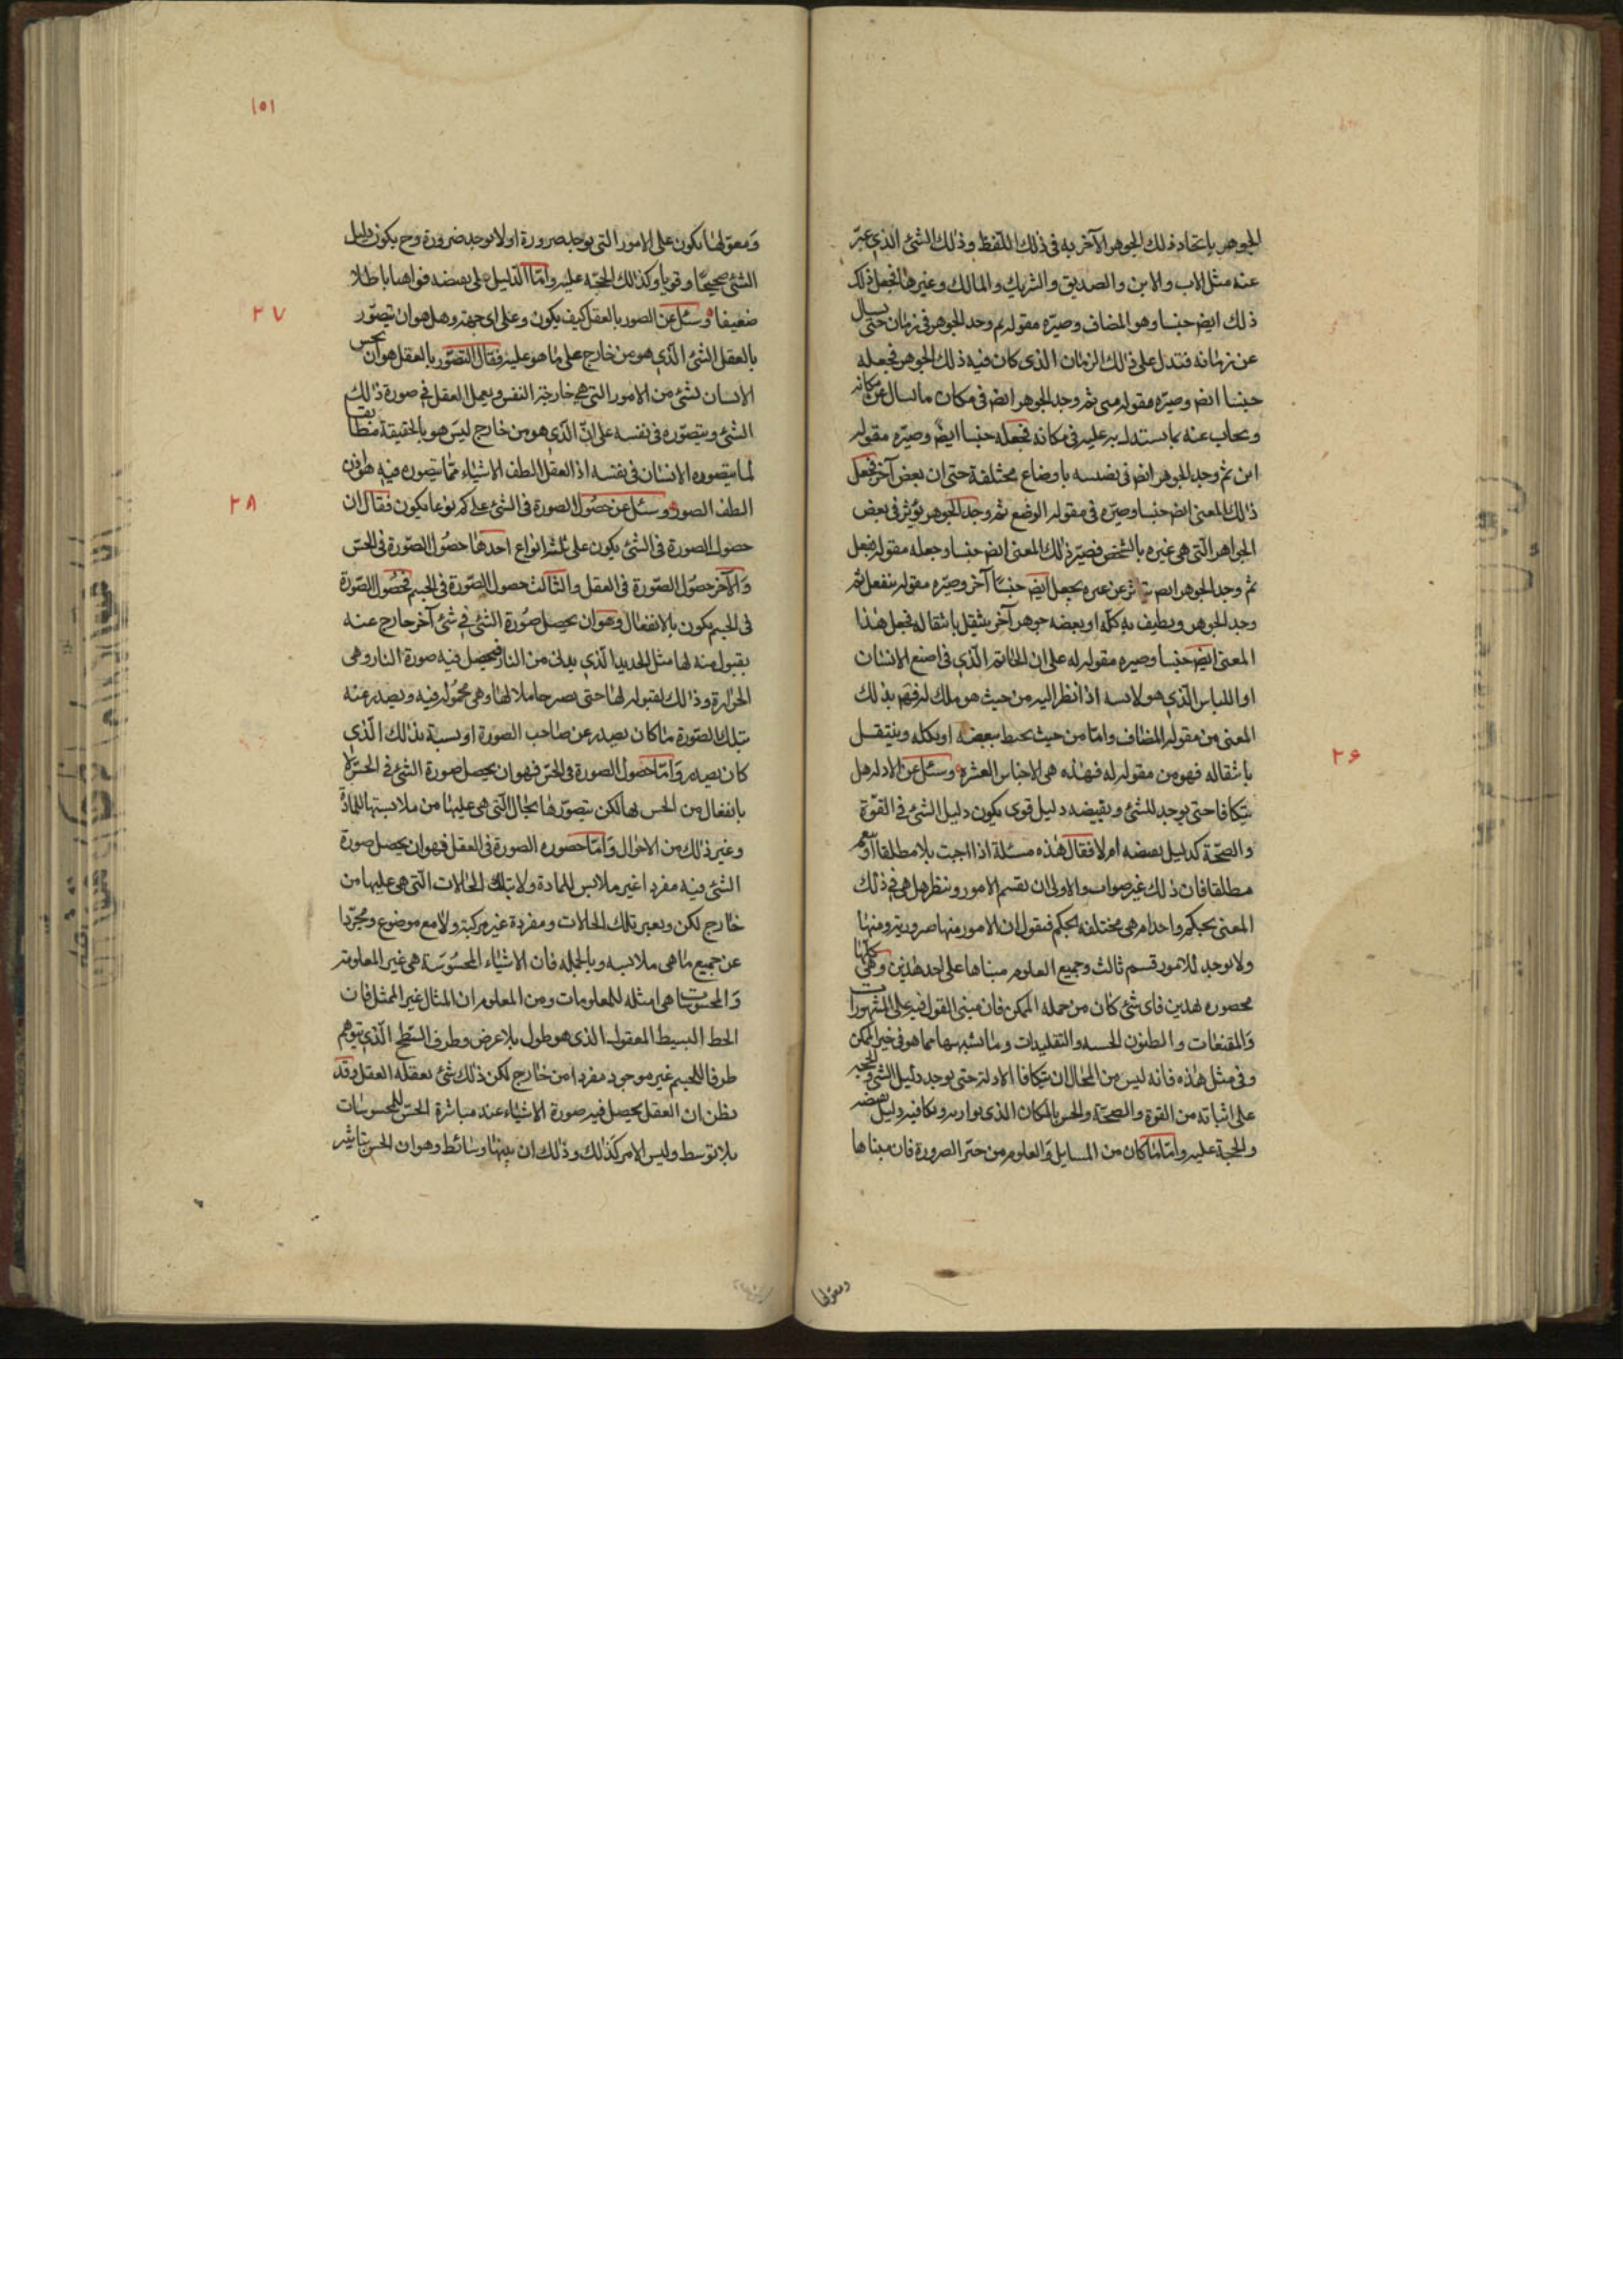 الجوهر باتحاد ذلك الجوهر الآخر به فى ذلك اللفظ وذلك الشئ الذى عبّر
عنه مثل الاب والابن والصديق والشريك والمالك وغيرها فجعل ذلك
ذلك ايض جنسا وهو المضاف وصيّره مقولة ثم وجد الجوهر فى زمان حتى يسال
عن زمانه فتدل على ذلك الزمان الذى كان فيه ذلك الجوهر فجعله
جنسا ايض وصيّره مقولة متى ثم وجد الجوهر ايض فى مكان ما يسال عن مكانه
ويجاب عنه بما يستدل به عليه فى مكانه فجعله جنسا ايض وصيّره مقولة
اين ثم وجد الجوهر ايض فى نفسه باوضاع مختلفة حتى ان بعض آخر فجعل
ذلك المعنى ايض جنسا وصيّره فى مقولة الوضع ثم وجد الجوهر يؤثر فى بعض
الجواهر التى هى غيره بالشخص فصيّر ذلك المعنى ايض جنسا وجعله مقولة يفعل
ثم وجد الجوهر ايض يتاثر عن غيره يجعل ايض جنسًا آخر وصيّره مقولة ينفعل ثم
وجد الجوهر ويطيف به كلّه او بعضه جوهر آخر ينتقل بانتقاله فجعل هذا
المعنى ايض جنسا وصيره مقولة له على ان الخاتم الّذى فى اصبع الانسان
او اللباس الّذى هو لابسه اذا نظر اليه من حيث هو ملك له فهم بذلك
المعنى من مقولة المضاف وامّا من حيث يحيط ببعضه او بكله وينتقل
بانتقاله فهو من مقولة له فهذه هى الاجناس العشرة وسئل عن الادلة هل
يتكافا حتى يوجد للشئ ونقيضه دليل قوى يكون دليل الشئ فى القوّة
والصحّة كدليل نقيضه ام لا فقال هذه مسئلة اذا اجبت بلا مطلقا او نعم
مطلقا فان ذلك غير صواب والاولى ان نقسم الامور وننظر هل هى فى ذلك
المعنى بحكم واحد ام هى مختلفة الحكم فنقول ان الامور منها ضرورية ومنها
ولا يوجد للامور قسم ثالث وجميع العلوم مبناها على احد هذين وهى كلها
محصورة بهذين فاى شئ كان من جملة الممكن فان مبنى القول فيه على المشهورات
والمقنعات والظنون الحسنة والتقليدات وما اشبهها مما هو فى حيز الممكن
وفى مثل هذه فانه ليس من المحال ان يتكافا الادلة حتى يوجد دليل الشئ والحجة
على اثباته من القوة والصحّة والحس بالمكان الذى يوازيه ويكافيه دليل نقيضه
والحجة عليه وامّا ما كان من المسايل والعلوم من حيّز الضرورة فان مبناها
ومعولها
٢۶
١٥١
ومعوّلها يكون على الامور التى يوجد ضرورة او لا يوجد ضرورة وح يكون دليل
الشئ صحيحًا وقويا وكذلك الحجّة عليه وامّا الدّليل على نقيضه فواهيا باطلا
ضعيفا وسئل عن الصور بالعقل كيف يكون وعلى اى جهة وهل هو ان يتصوّر
٢٧
بالعقل الشئ الّذى هو من خارج على ما هو عليه فقال التصوّر بالعقل هو ان يحس
الانسان بشئ من الامور التى هى خارجة النفس ويعمل العقل فى صورة ذلك
الشئ ويتصوّره فى نفسه على انّ الّذى هو من خارج ليس هو بالحقيقة مطابقا
لما يتصوره الانسان فى نفسه اذ العقل الطف الاشياء فما يتصوره فيه هو اذن
الطف الصور وسئل عن حصول الصورة فى الشئ على كم نوعا يكون فقال ان
٢٨
حصول الصورة فى الشئ يكون على ثلثة انواع احدها حصول الصّورة فى الحسّ
والآخر حصول الصّورة فى العقل والثالث حصول الصّورة فى الجسم فحصول الصّورة
فى الجسم يكون بالانفعال وهو ان يحصل صورة الشئ فى شئ آخر خارج عنه
بقبول منه لها مثل الحديد الّذى يدنى من النار فيحصل فيه صورة النار وهى
الحرارة وذلك لقبوله لها حتى يصير حاملا لها وهى محموله فيه ويصدر عنه
بتلك الصّورة ما كان يصدر عن صاحب الصورة او نسبة بذلك الّذى
كان يصدر وامّا حصول الصورة فى الحسّ فهو ان يحصل صورة الشئ فى الحسّ لا
بانفعال من الحس بها لكن يتصوّرها بحال الّتى هى عليها من ملابستها للمادّة
وغير ذلك من الاحوال وامّا حصوره الصورة فى العقل فهو ان يحصل صورة
الشئ فيه مفردا غير ملابس للمادة ولا بتلك الحالات الّتى هى عليها من
خارج لكن وبغير تلك الحالات ومفردة غير مركبة ولا مع موضوع ومجرّدا
عن جميع ما هى ملابسه وبالجمله فان الاشياء المحسوسة هى غير المعلومة
والمحسوسات هى امثله للمعلومات ومن المعلوم ان المثال غير الممثل فان
الخط البسيط المعقول الذى هو طول بلا عرض وطرف السّطح الّذى يتوهم
طرفا للجسم غير موجود مفردا من خارج لكن ذلك شئ يعقله العقل وقد
يظن ان العقل يحصل فيه صورة الاشياء عند مباشرة الحسّ للمحسوسات
بلا توسط وليس الامر كذلك وذلك ان بينها وسائط وهو ان الحس يباشر